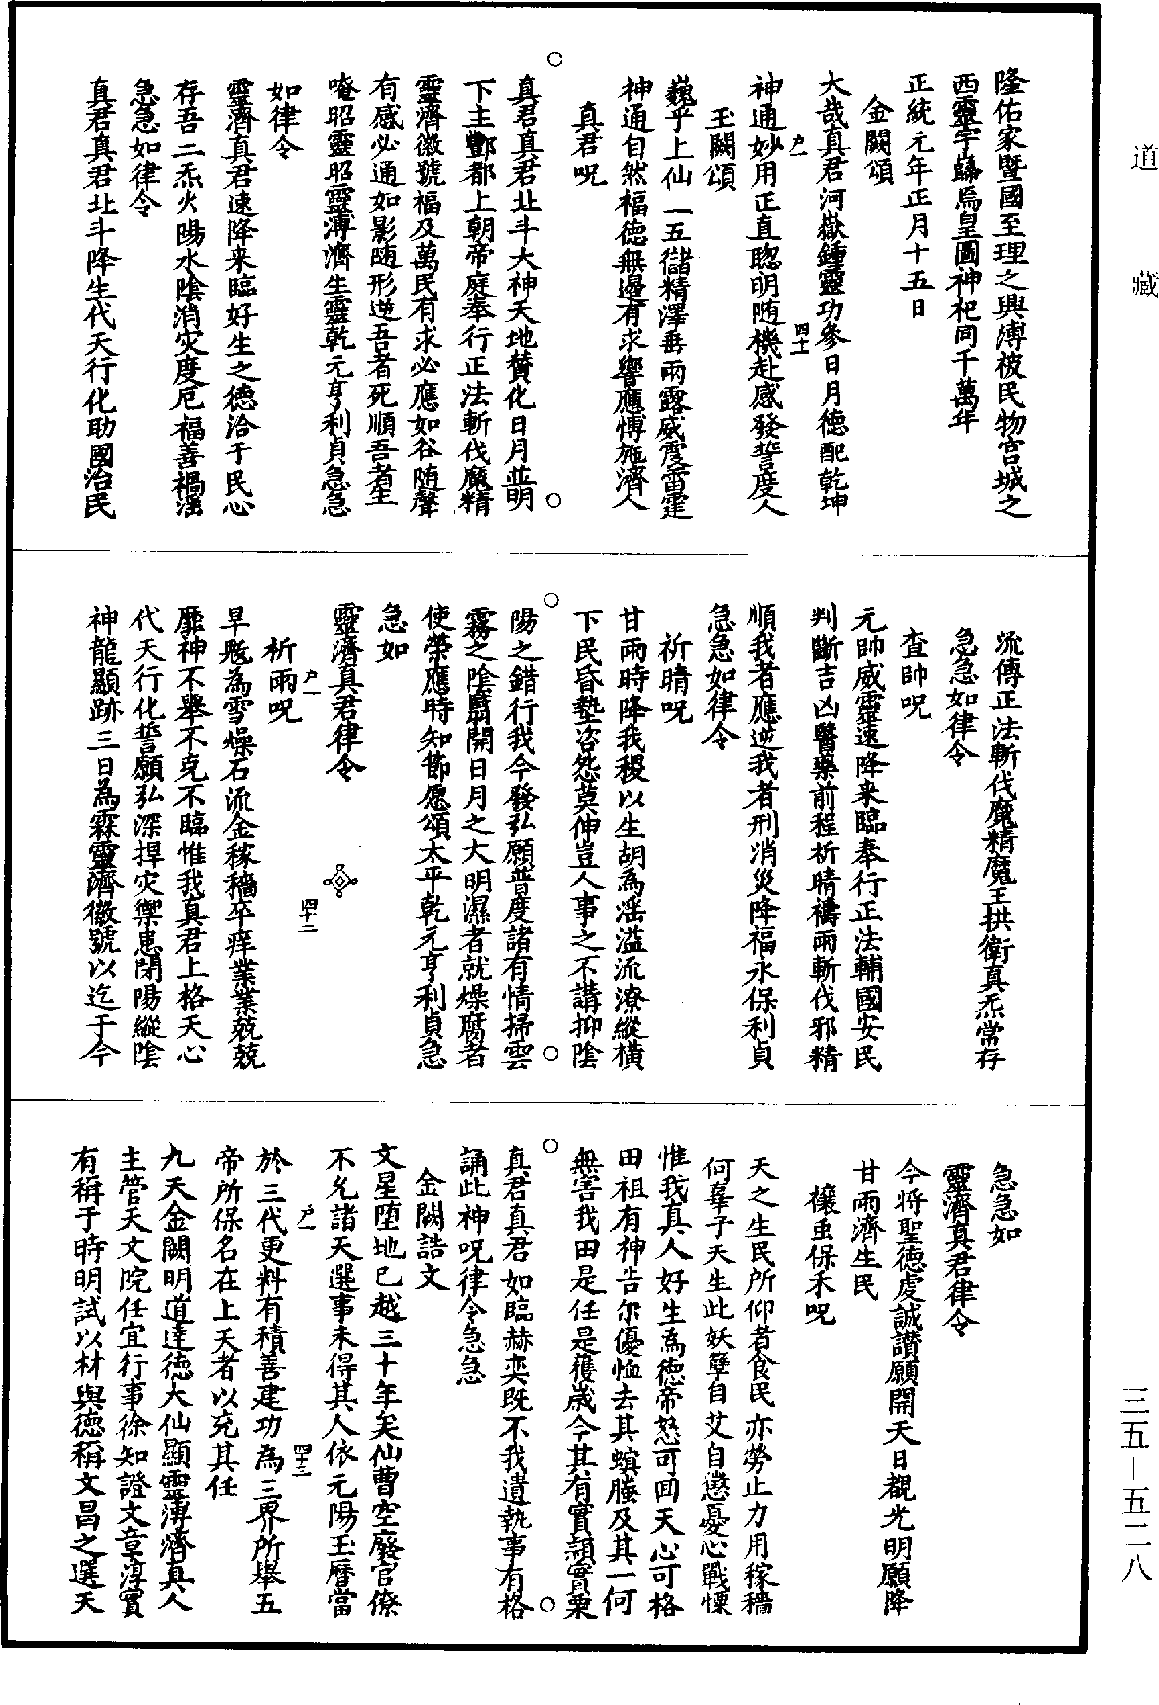 道藏
隆佑家暨國至理之興溥被民物宫城之
西靈宇歸焉皇圖神祀同千萬年
正統元年正月十五日
金闕頌
大哉真君河嶽鍾靈功參日月德配乾坤
神通妙用正直聦明随機赴感發誓度人
户一
四十
玉闕頌
巍乎上仙一五儲精澤垂雨露威震雷霆
神通自然福德無邊有求響應愽施濟人
真君呪
真君真君北斗大神天地賛化日月並明
下主酆都上朝帝庭奉行正法斬伐魔精
靈濟徽號福及萬民有求必應如谷随聲
有感必通如影随形逆吾者死順吾者生
唵昭靈昭靈溥濟生靈乾元亨利貞急急
如律令
靈濟真君速降来臨好生之德洽于民心
存吾二炁火陽水陰消灾度厄福善禍滛
急急如律令
真君真君北斗降生代天行化助國治民
流傳正法斬伐魔精魔王拱衛真炁常存
急急如律令
查帥呪
元帥威靈速降来臨奉行正法輔國安民
判斷吉凶醫藥前程祈晴禱雨斬伐邪精
順我者應逆我者刑消災降福永保利貞
急急如律令
祈晴呪
甘雨時降我稷以生胡為滛溢流潦縱横
下民昏墊咨怨莫伸豈人事之不講抑陰
陽之錯行我今發弘願普度諸有情掃雲
霧之陰翳開日月之大明濕者就燥腐者
使榮應時知節愿頌太平乾元亨利貞急
急如
靈濟真君律令
四十二
户一
祈雨呪
旱魃為雪燥石流金稼穡卒痒業業兢兢
靡神不舉不克不臨惟我真君上格天心
代天行化誓願弘深捍灾禦患閉陽縱陰
神龍顯跡三日為霖靈濟徽號以迄于今
急急如
靈濟真君律令
今將聖德虔誠讃願開天日覩光明願降
甘雨濟生民
禳虫保禾呪
天之生民所仰者食民亦勞止力用稼穡
何辜于天生此妖孽自艾自懲憂心戰慄
惟我真人好生為德帝怒可回天心可格
田祖有神告尔優恤去其螟螣及其一何
無害我田是任是穫歲今其有實穎實栗
真君真君如臨赫奕既不我遺執事有格
誦此神呪律令急急
金闕誥文
文星墮地已越三十年矣仙曹空廢官僚
不允諸天選事未得其人依元陽玉曆當
户一
四十三
於三代更料有積善建功為三界所舉五
帝所保名在上天者以充其任
九天金闕明道達德大仙顯靈溥濟真人
主管天文院任宜行事徐知證文章淳實
有稱于時明試以材與德稱文昌之選天
三五－五二八